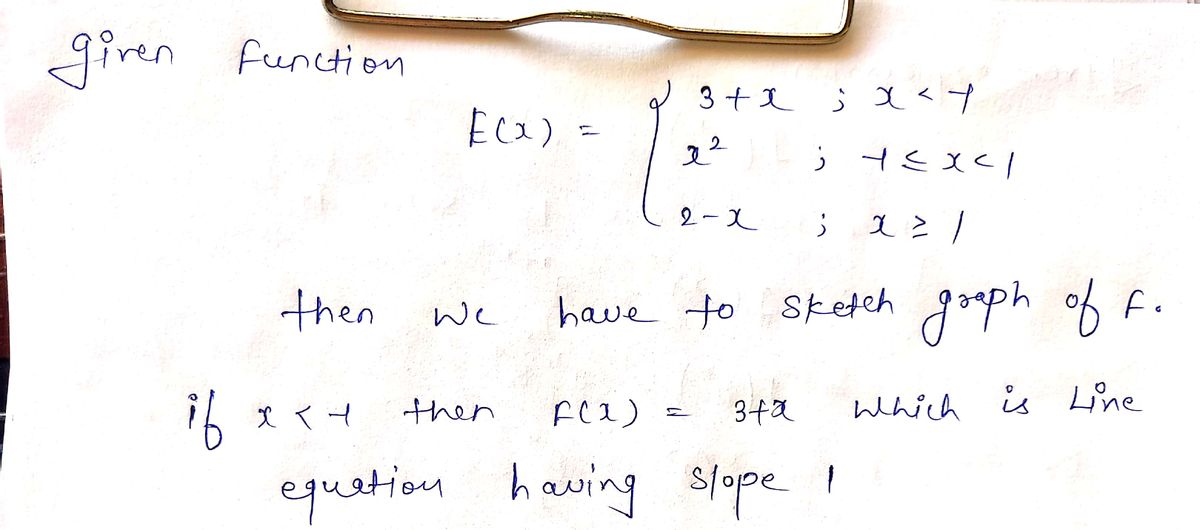 given function
E(x) = { 3+x ; x < -1
x² ; -1 ≤ x < 1
2-x ; x ≥ 1
then we have to sketch graph of F.
if x < -1 then F(x) = 3+x which is Line
equation having slope 1